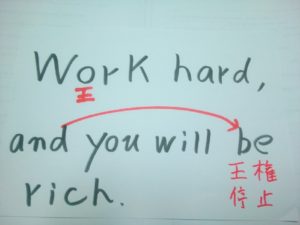 Work hard,
王
and you will be
王権
停止
rich.